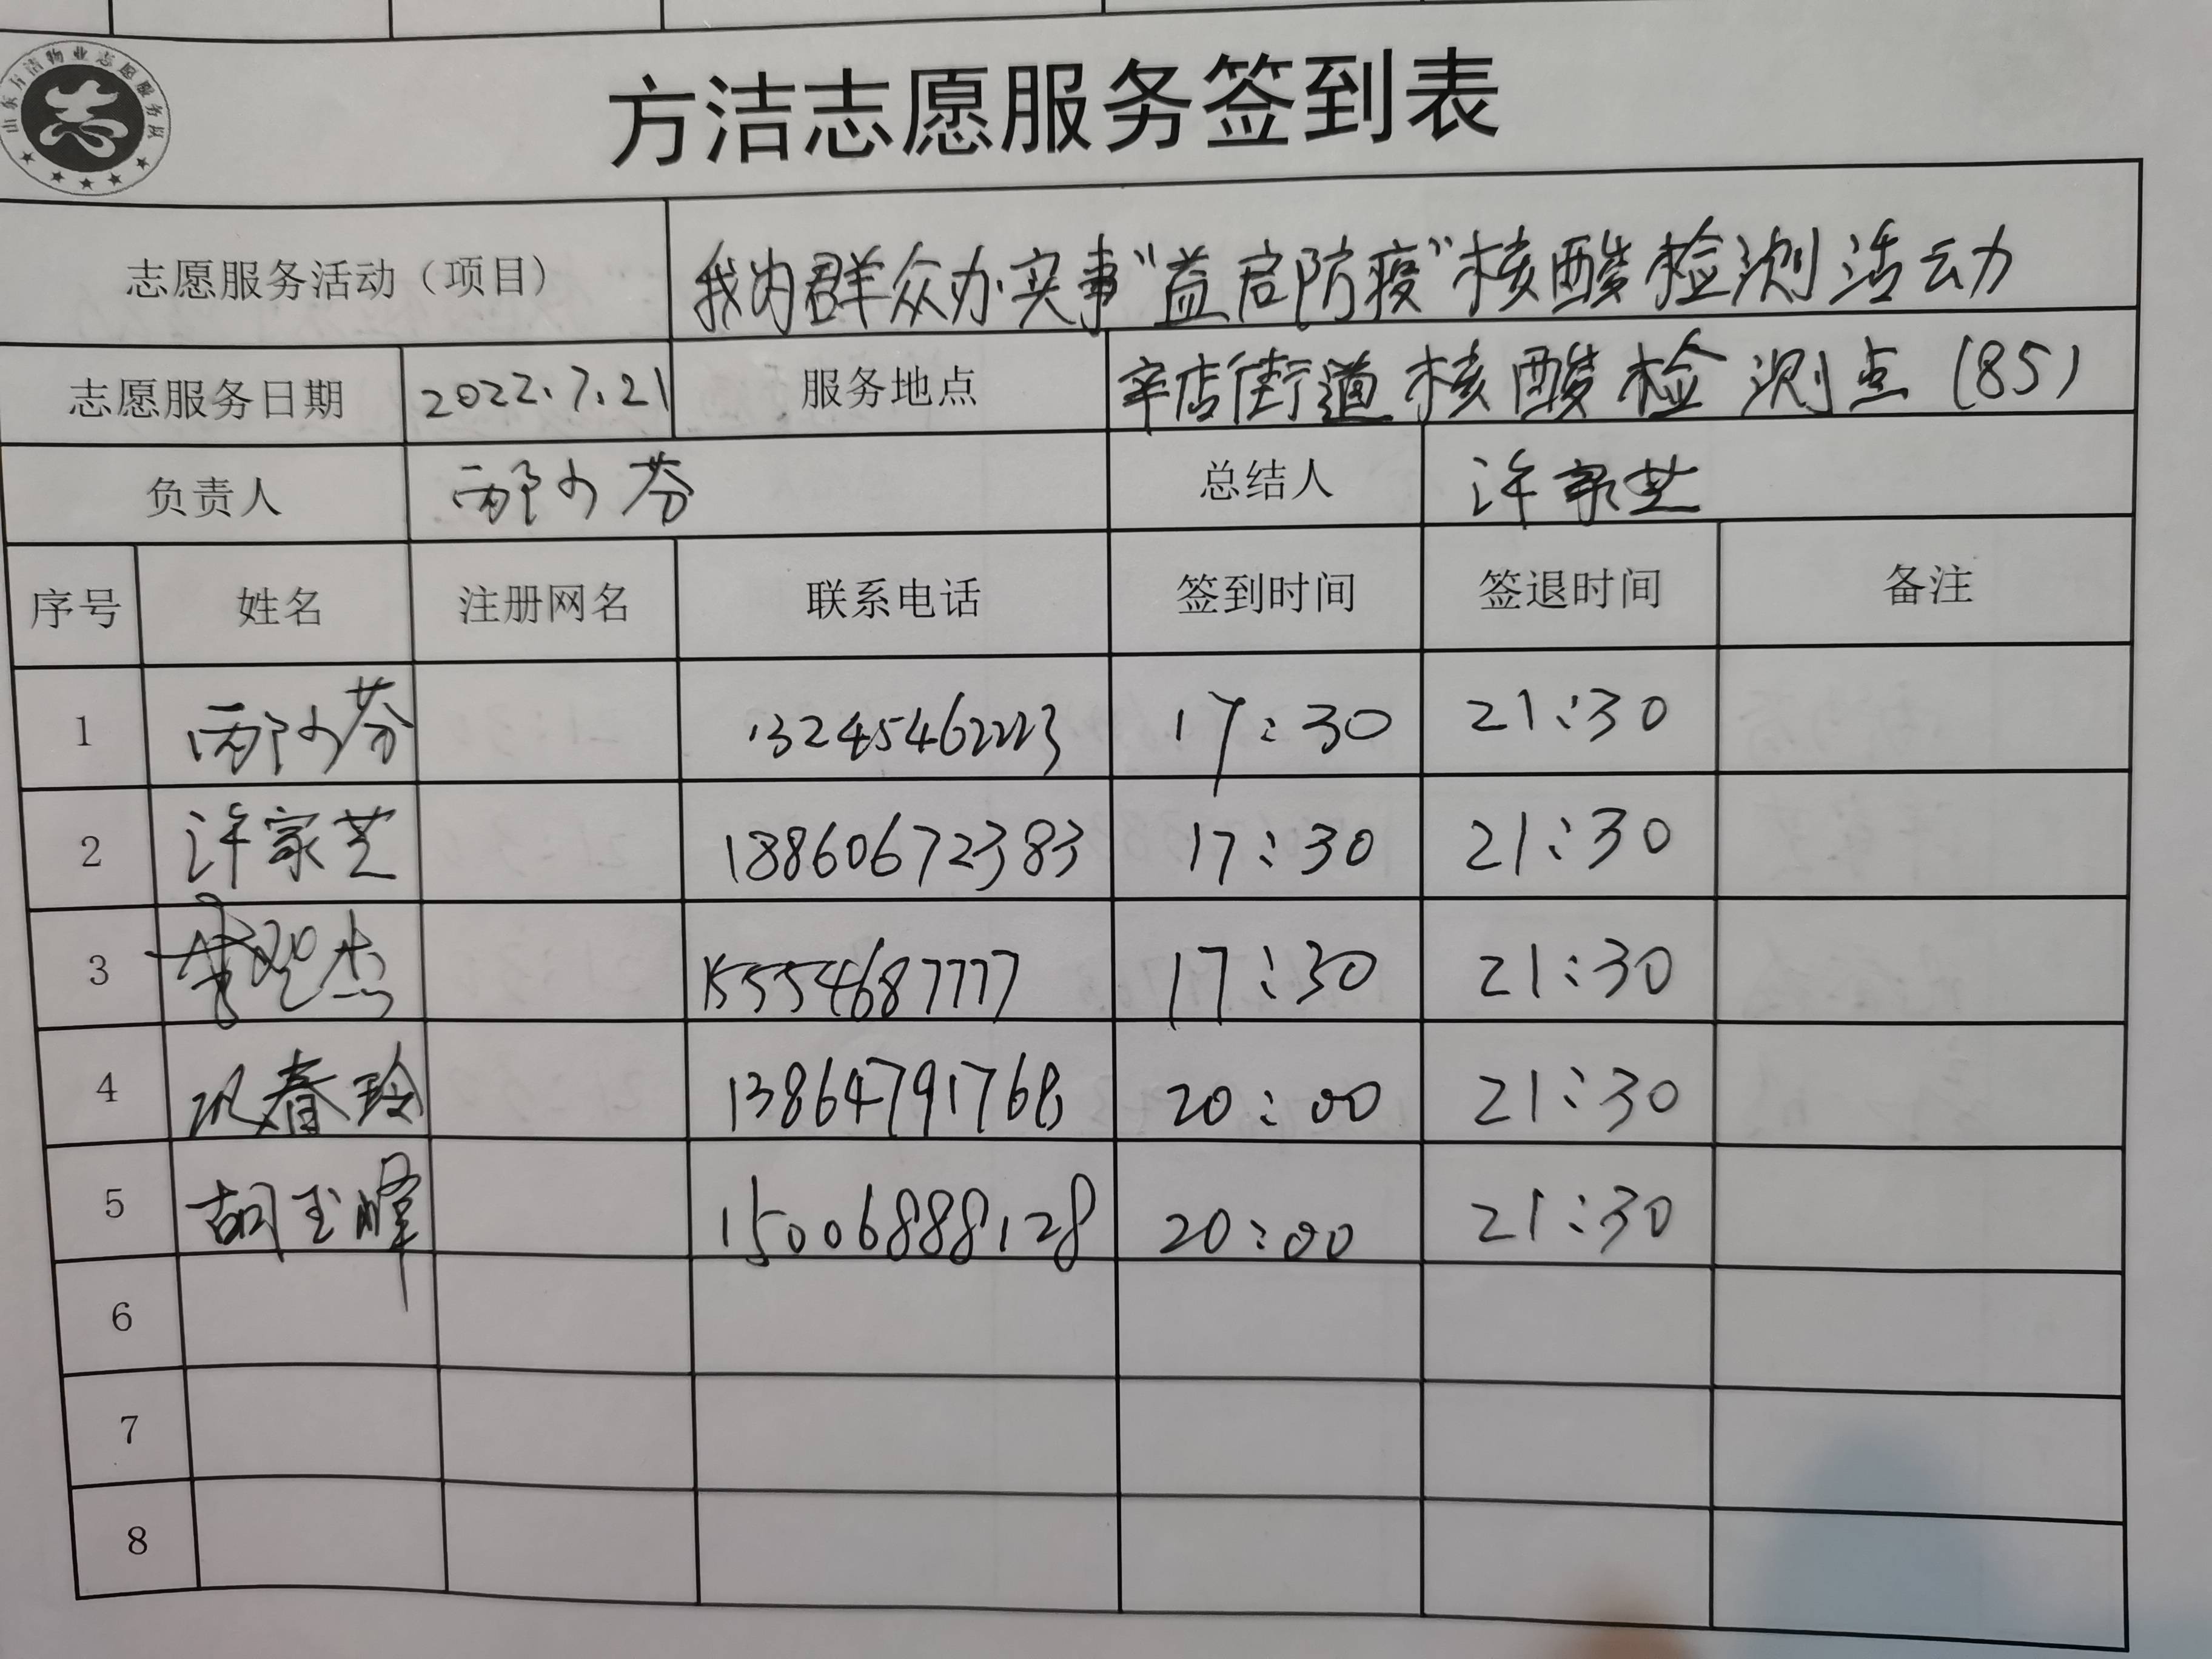 山东方洁物业志愿服务队
方洁志愿服务签到表
志愿服务活动（项目） 我为群众办实事“益启防疫”核酸检测活动
志愿服务日期 2022.7.21 服务地点 辛店街道核酸检测点（85）
负责人 邴少芬 总结人 许家芝
序号 姓名 注册网名 联系电话 签到时间 签退时间 备注
1 邴少芬 13245462223 17:30 21:30
2 许家芝 18860672383 17:30 21:30
3 15554687777 17:30 21:30
4 春玲 13864791768 20:00 21:30
5 胡玉峰 15006888128 20:00 21:30
6
7
8